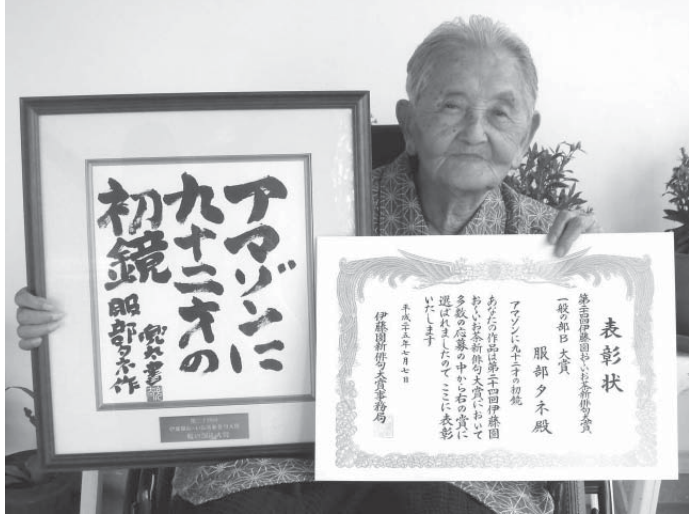 アマゾンに
九十二才の
初鏡
服部タネ作
表彰状
第二十四回伊藤園おーいお茶新俳句大賞
一般の部B 大賞
服部タネ殿
アマゾンに九十二才の初鏡
あなたの作品は第二十四回伊藤園
おーいお茶新俳句大賞において
多数の応募の中から右の賞に
選ばれましたので、ここに表彰
いたします
平成二十五年七月七日
伊藤園新俳句大賞事務局